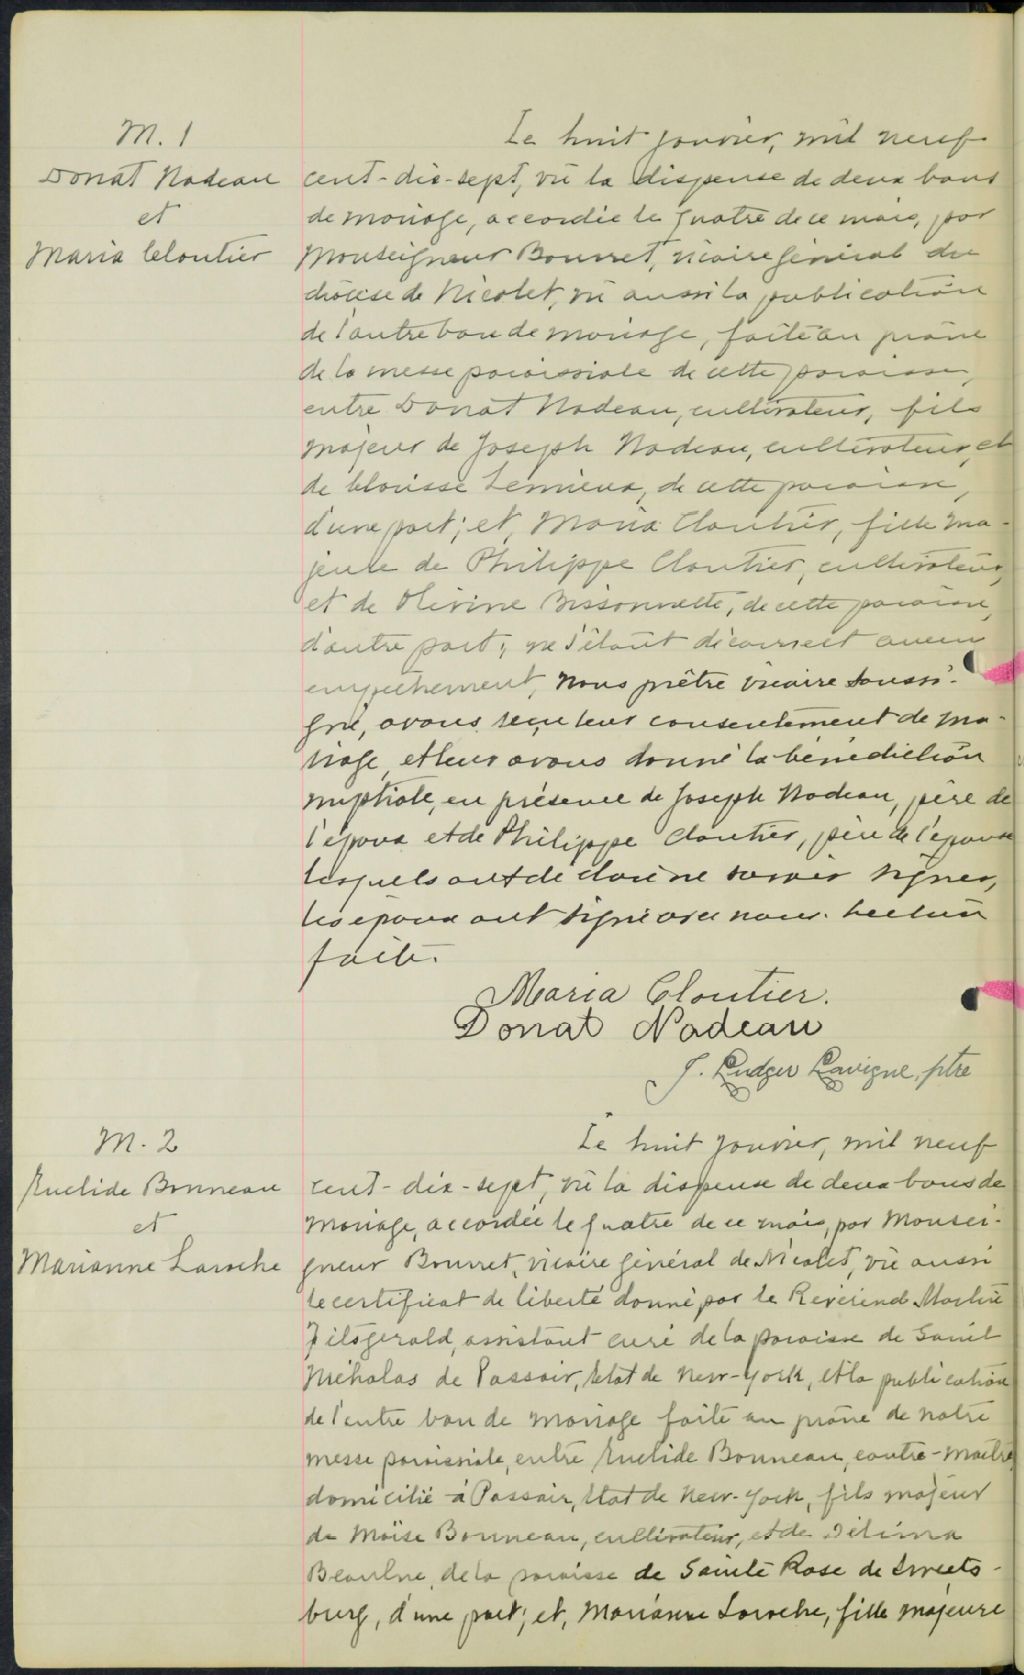 M. 1
Donat Nadeau
et
Maria Cloutier
Le huit janvier, mil neuf
cent-dix-sept, vu la dispense de deux bans
de mariage, accordée le quatre de ce mois, par
Monseigneur Bourret, vicaire général du
diocèse de Nicolet, vu aussi la publication
de l'autre ban de mariage, faite au prône
de la messe paroissiale de cette paroisse,
entre Donat Nadeau, cultivateur, fils
majeur de Joseph Nadeau, cultivateur, et
de Clarisse Lemieux, de cette paroisse,
d'une part; et, Maria Cloutier, fille ma-
jeure de Philippe Cloutier, cultivateur,
et de Olivine Bissonnette, de cette paroisse,
d'autre part; ne s'étant découvert aucun
empêchement, Nous prêtre vicaire soussi-
gné, avons reçu leur consentement de ma-
riage, et leur avons donné la bénédiction
nuptiale, en présence de Joseph Nadeau, père de
l'époux et de Philippe Cloutier, père de l'épouse
lesquels ont déclaré ne savoir signer,
les époux ont signé avec nous. Lecture
faite.
Maria Cloutier.
Donat Nadeau
J. Ludger Lavigne, ptre
M. 2
Euclide Bonneau
et
Marianne Laroche
Le huit janvier, mil neuf
cent-dix-sept, vu la dispense de deux bans de
mariage, accordée le quatre de ce mois, par Monsei-
gneur Bourret, vicaire général de Nicolet, vu aussi
le certificat de liberté donné par le Révérend Martin
Fitsgerald, assistant curé de la paroisse de Saint
Nicholas de Passaic, Etat de New-York, et la publication
de l'autre ban de mariage faite au prône de notre
messe paroissiale, entre Euclide Bonneau, contre-maître,
domicilié à Passaic, Etat de New-York, fils majeur
de Moïse Bonneau, cultivateur, et de Délima
Beaulne, de la paroisse de Sainte Rose de Sweets-
burg, d'une part; et, Marianne Laroche, fille majeure